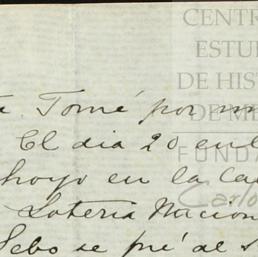 CENTR
ESTU
DE HIS
DE ME
FUNDA
Carlo
Tomé por
El dia 20 en
hoyo en la Ca
Loteria Nacion
Sebo se pré al s